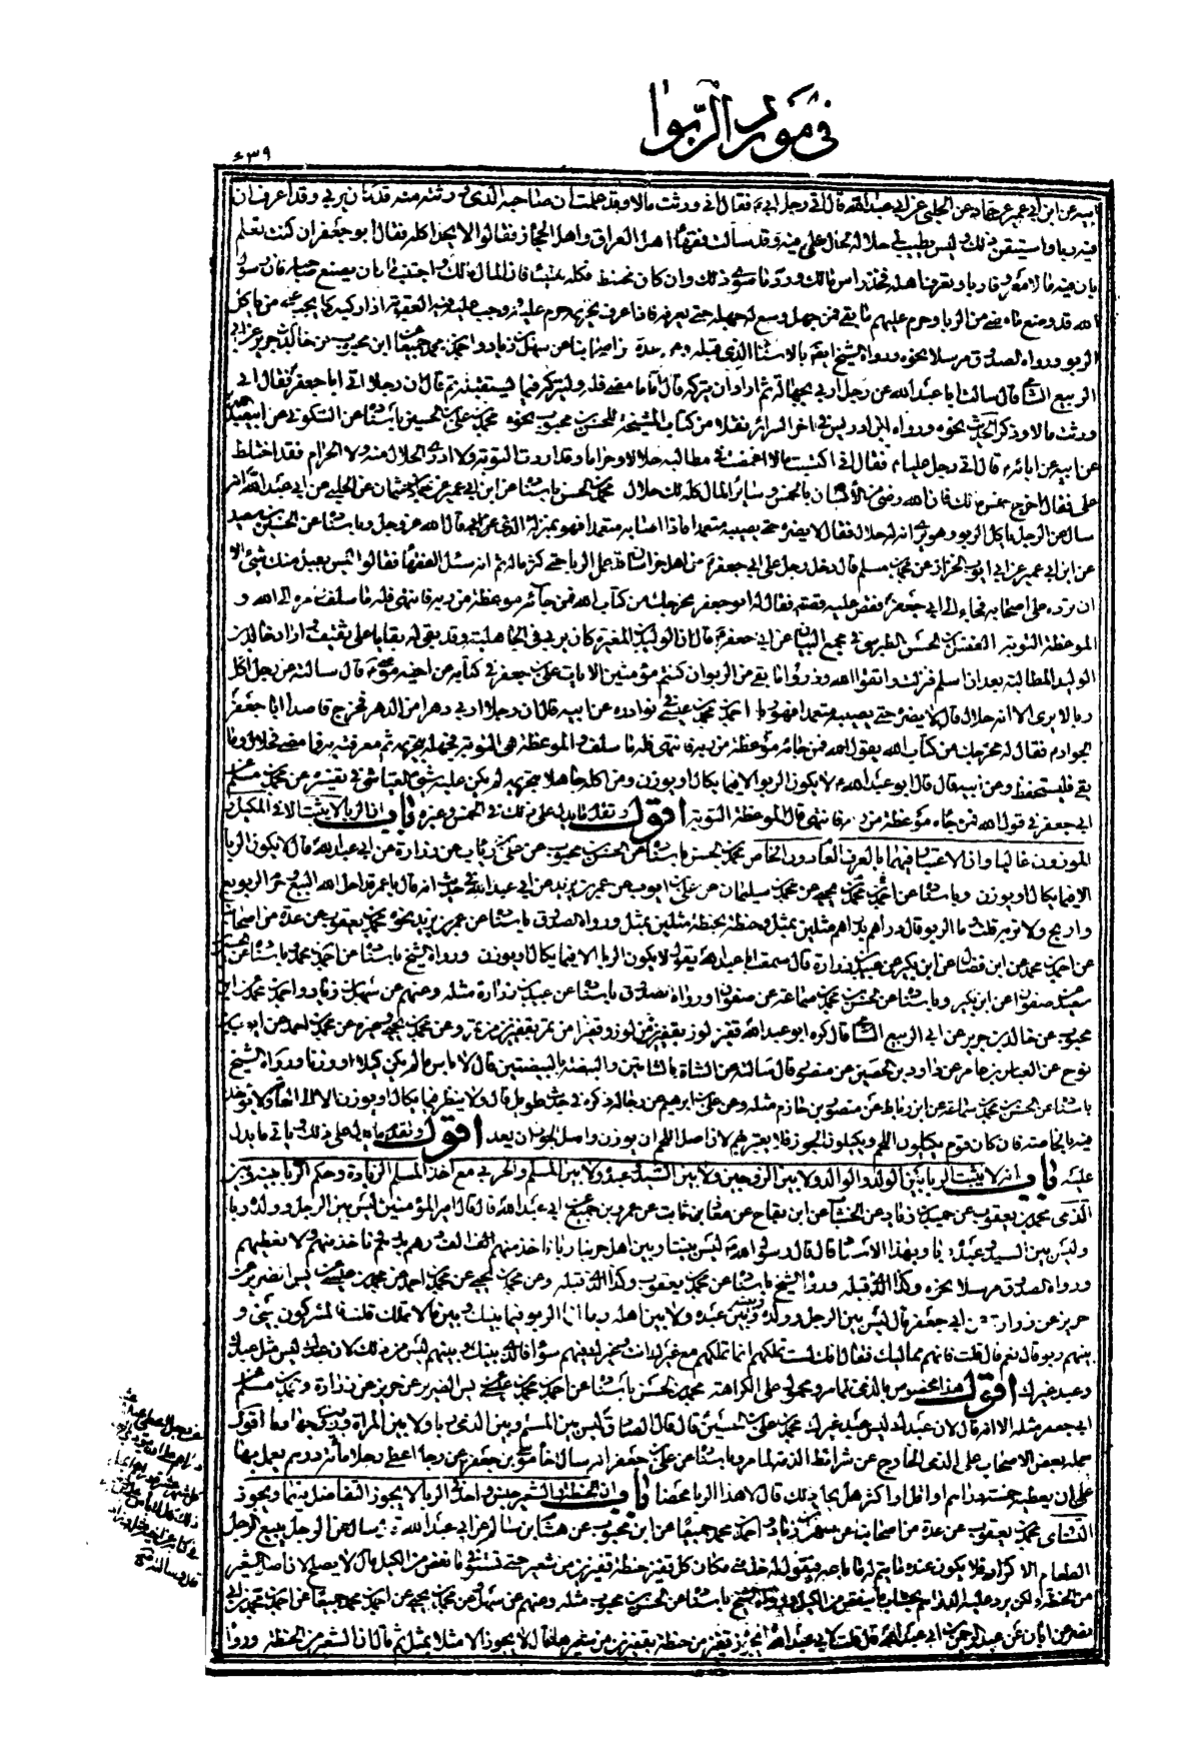 في موارد الربوا
٤٣٩
ابيه عن ابن ابي عمير عن حماد عن الحلبي عن ابي عبد الله قال اتى رجل ابي فقال اني ورثت مالا وقد علمت ان صاحبه الذي ورثته منه قد كان يربي وقد اعرف ان
فيه ربا واستيقن ذلك وليس يطيب لي حلاله لحال علمي فيه وقد سالت فقهاء اهل العراق واهل الحجاز فقالوا لا يحل اكله فقال ابو جعفر ان كنت تعلم
بان فيه مالا معروفا ربا وتعرف اهله فخذ راس مالك ورد ما سوى ذلك وان كان مختلطا فكله هنيئا فان المال مالك واجتنب ما كان يصنع صاحبه فان رسول
الله قد وضع ما مضى من الربا وحرم عليهم ما بقي فمن جهل وسع له جهله حتى يعرفه فاذا عرف تحريمه حرم عليه ووجب عليه فيه العقوبة اذا ركبه كما يجب على من ياكل
الربو ورواه الصدوق مرسلا نحوه ورواه الشيخ ايضا بالاسناد الذي قبله وعن عدة من اصحابنا عن سهل بن زياد واحمد بن محمد جميعا عن ابن محبوب عن خالد بن جرير عن ابي
الربيع الشامي قال سالت ابا عبد الله عن رجل اربى بجهالة ثم اراد ان يتركه قال اما ما مضى فله وليتركه فيما يستقبل ثم قال ان رجلا اتى ابا جعفر فقال اني
ورثت مالا وذكر الحديث نحوه ورواه ابن ادريس في اخر السرائر نقلا من كتاب المشيخة للحسن بن محبوب نحوه محمد بن علي بن الحسين باسناده عن السكوني عن جعفر بن محمد
عن ابيه عن ابائه قال اتى رجل عليا فقال اني اكتسبت مالا اغمضت في مطالبه حلالا وحراما وقد اردت التوبة ولا ادري الحلال منه ولا الحرام فقد اختلط
علي فقال اخرج خمس مالك فان الله رضي من الانسان بالخمس وسائر المال كله لك حلال محمد بن الحسن باسناده عن ابن ابي عمير عن حماد بن عثمان عن الحلبي عن ابي عبد الله انه
سال عن الرجل ياكل الربو وهو يرى انه له حلال فقال لا يضره حتى يصيبه متعمدا فاذا اصابه متعمدا فهو بمنزلة الذي قال الله عز وجل وباسناده عن الحسين بن سعيد
عن ابن ابي عمير عن ابي ايوب الخزاز عن محمد بن مسلم قال دخل رجل على ابي جعفر من اهل خراسان قد عمل الربا حتى كثر ماله ثم انه سئل الفقهاء فقالوا ليس يقبل منك شيء الا
ان ترده على اصحابه فجاء الى ابي جعفر فقص عليه قصته فقال له ابو جعفر مخرجك من كتاب الله فمن جاءه موعظة من ربه فانتهى فله ما سلف وامره الى الله و
الموعظة التوبة الفضل بن الحسن الطبرسي في مجمع البيان عن ابي جعفر قال ان الوليد بن المغيرة كان يربي في الجاهلية وقد بقي له بقايا على ثقيف فاراد خالد بن
الوليد المطالبة بعد ان اسلم فنزلت واتقوا الله وذروا ما بقي من الربو ان كنتم مؤمنين الايات علي بن جعفر في كتابه عن اخيه موسى قال سالته عن رجل اكل
ربا لا يرى الا انه حلال قال لا يضره حتى يصيبه متعمدا فهو ربا احمد بن محمد بن عيسى في نوادره عن ابيه قال ان رجلا اربى دهرا من الدهر فخرج قاصدا ابا جعفر
الجواد فقال له مخرجك من كتاب الله يقول الله فمن جاءه موعظة من ربه فانتهى فله ما سلف والموعظة هي التوبة فجهله بتحريمه ثم معرفته به فما مضى فحلال وما
بقي فليستحفظ وعن ابيه قال قال ابو عبد الله لا يكون الربو الا فيما يكال او يوزن ومن اكله جاهلا بتحريمه لم يكن عليه شيء العياشي في تفسيره عن محمد بن مسلم
ابي جعفر في قول الله فمن جاءه موعظة من ربه فانتهى قال الموعظة التوبة اقول وتقدم ما يدل على ذلك في الخمس وغيره باب ان الربا لا يثبت الا في المكيل و
الموزون غالبا وان الاعتبار فيهما بالعرف العام دون الخاص محمد بن الحسن باسناده عن الحسن بن محبوب عن علي بن رئاب عن زرارة عن ابي عبد الله قال لا يكون الربا
الا فيما يكال او يوزن وباسناده عن احمد بن محمد بن يحيى عن محمد بن سليمان عن علي بن ايوب عن عمر بن يزيد عن ابي عبد الله في حديث انه قال يا عمر قد احل الله البيع وحرم الربو بع
واربح ولا تربه قلت وما الربو قال دراهم بدراهم مثلين بمثل وحنطة بحنطة مثلين بمثل ورواه الصدوق باسناده عن عمر بن يزيد نحوه محمد بن يعقوب عن عدة من اصحابنا
عن احمد بن محمد عن ابن فضال عن ابن بكير عن عبيد بن زرارة قال سمعت ابا عبد الله يقول لا يكون الربا الا فيما يكال او يوزن ورواه الشيخ باسناده عن احمد بن محمد وباسناده عن الحسين بن
سعيد عن صفوان عن ابن بكير وباسناده عن الحسن بن محمد بن سماعة عن صفوان ورواه الصدوق باسناده عن عبيد بن زرارة مثله وعنهم عن سهل بن زياد واحمد بن محمد عن ابن
محبوب عن خالد بن جرير عن ابي الربيع الشامي قال كره ابو عبد الله قفيز لوز بقفيزين من لوز وقفيزا من تمر بقفيزين من تمر وعن محمد بن يحيى وغيره عن محمد بن احمد عن ايوب بن
نوح عن العباس بن عامر عن داود بن الحصين عن منصور قال سالته عن الشاة بالشاتين والبيضة بالبيضتين قال لا باس ما لم يكن كيلا او وزنا ورواه الشيخ
باسناده عن الحسن بن محمد بن سماعة عن ابن رباط عن منصور بن حازم مثله وعن علي بن ابراهيم عن رجاله ذكره في حديث طويل قال ولا ينظر فيما يكال او يوزن الا الى العامة ولا يؤخذ
فيه بالخاصة فان كان قوم يكيلون اللحم ويكيلون الجوز فلا يعتبر بهم لان اصل اللحم ان يوزن واصل الجوز ان يعد اقول وتقدم ما يدل على ذلك وياتي ما يدل
عليه باب انه لا يثبت الربا بين الولد والوالد ولا بين الزوجين ولا بين السيد وعبده ولا بين المسلم والحربي مع اخذ المسلم الزيادة وحكم الربا بينه وبين
الذمي محمد بن يعقوب عن حميد بن زياد عن الخشاب عن ابن بقاح عن معاذ بن ثابت عن عمرو بن جميع عن ابي عبد الله قال قال امير المؤمنين ليس بين الرجل وولده ربا
وليس بين السيد وعبده ربا وبهذا الاسناد قال قال رسول الله ليس بيننا وبين اهل حربنا ربا ناخذ منهم الف الف درهم بدرهم ناخذ منهم ولا نعطيهم
ورواه الصدوق مرسلا نحوه وكذا الذي قبله ورواه الشيخ باسناده عن محمد بن يعقوب وكذا الذي قبله وعن محمد بن يحيى عن محمد بن احمد عن محمد بن عيسى عن يس الضرير عن
حريز عن زرارة عن ابي جعفر قال ليس بين الرجل وولده وبينه وبين عبده ولا بين اهله ربا انما الربو فيما بينك وبين ما لا تملك قلت فالمشركون بيني و
بينهم ربو قال نعم قال قلت فانهم مماليك فقال انك لست تملكهم انما تملكهم مع غيرك انت وغيرك فيهم سواء فالذي بينك وبينهم ليس من ذلك لان عبدك ليس مثل عبدك
وعبد غيرك اقول هذا مخصوص بالذمي لما مر ومحمول على الكراهة محمد بن الحسن باسناده عن احمد بن محمد بن عيسى عن يس الضرير عن حريز عن زرارة ومحمد بن مسلم
ابي جعفر مثله الا انه قال لان عبدك ليس عبد غيرك محمد بن علي بن الحسين قال قال الصادق ليس بين المسلم وبين الذمي ربا ولا بين المراة وبين زوجها ربا اقول
حمله بعض الاصحاب على الذمي الخارج عن شرائط الذمة لما مر وباسناده عن علي بن جعفر انه سال اخاه موسى بن جعفر عن رجل اعطى رجلا مائة درهم يعمل بها
على ان يعطيه خمسة دراهم او اقل او اكثر هل يحل ذلك قال لا هذا الربا محضا باب ان الحنطة والشعير جنس واحد في الربا لا يجوز التفاضل فيهما ويجوز
التساوي محمد بن يعقوب عن عدة من اصحابنا عن سهل بن زياد واحمد بن محمد جميعا عن ابن محبوب عن هشام بن سالم عن ابي عبد الله قال سئل عن الرجل يبيع الرجل
الطعام الاكرار فلا يكون عنده ما يتم له ما باعه فيقول له خذ مني مكان كل قفيز حنطة قفيزين من شعير حتى تستوفي ما نقص من الكيل قال لا يصلح لان اصل الشعير
من الحنطة ولكن يرد عليه الدراهم بحساب ما ينقص من الكيل ورواه الشيخ باسناده عن الحسن بن محبوب مثله وعنهم عن سهل وعن محمد بن يحيى عن احمد بن محمد جميعا عن احمد بن محمد بن ابي
نصر عن ابان عن عبد الرحمن بن ابي عبد الله قال قلت لابي عبد الله ايجوز قفيز من حنطة بقفيزين من شعير فقال لا يجوز الا مثلا بمثل ثم قال ان الشعير من الحنطة ورواه